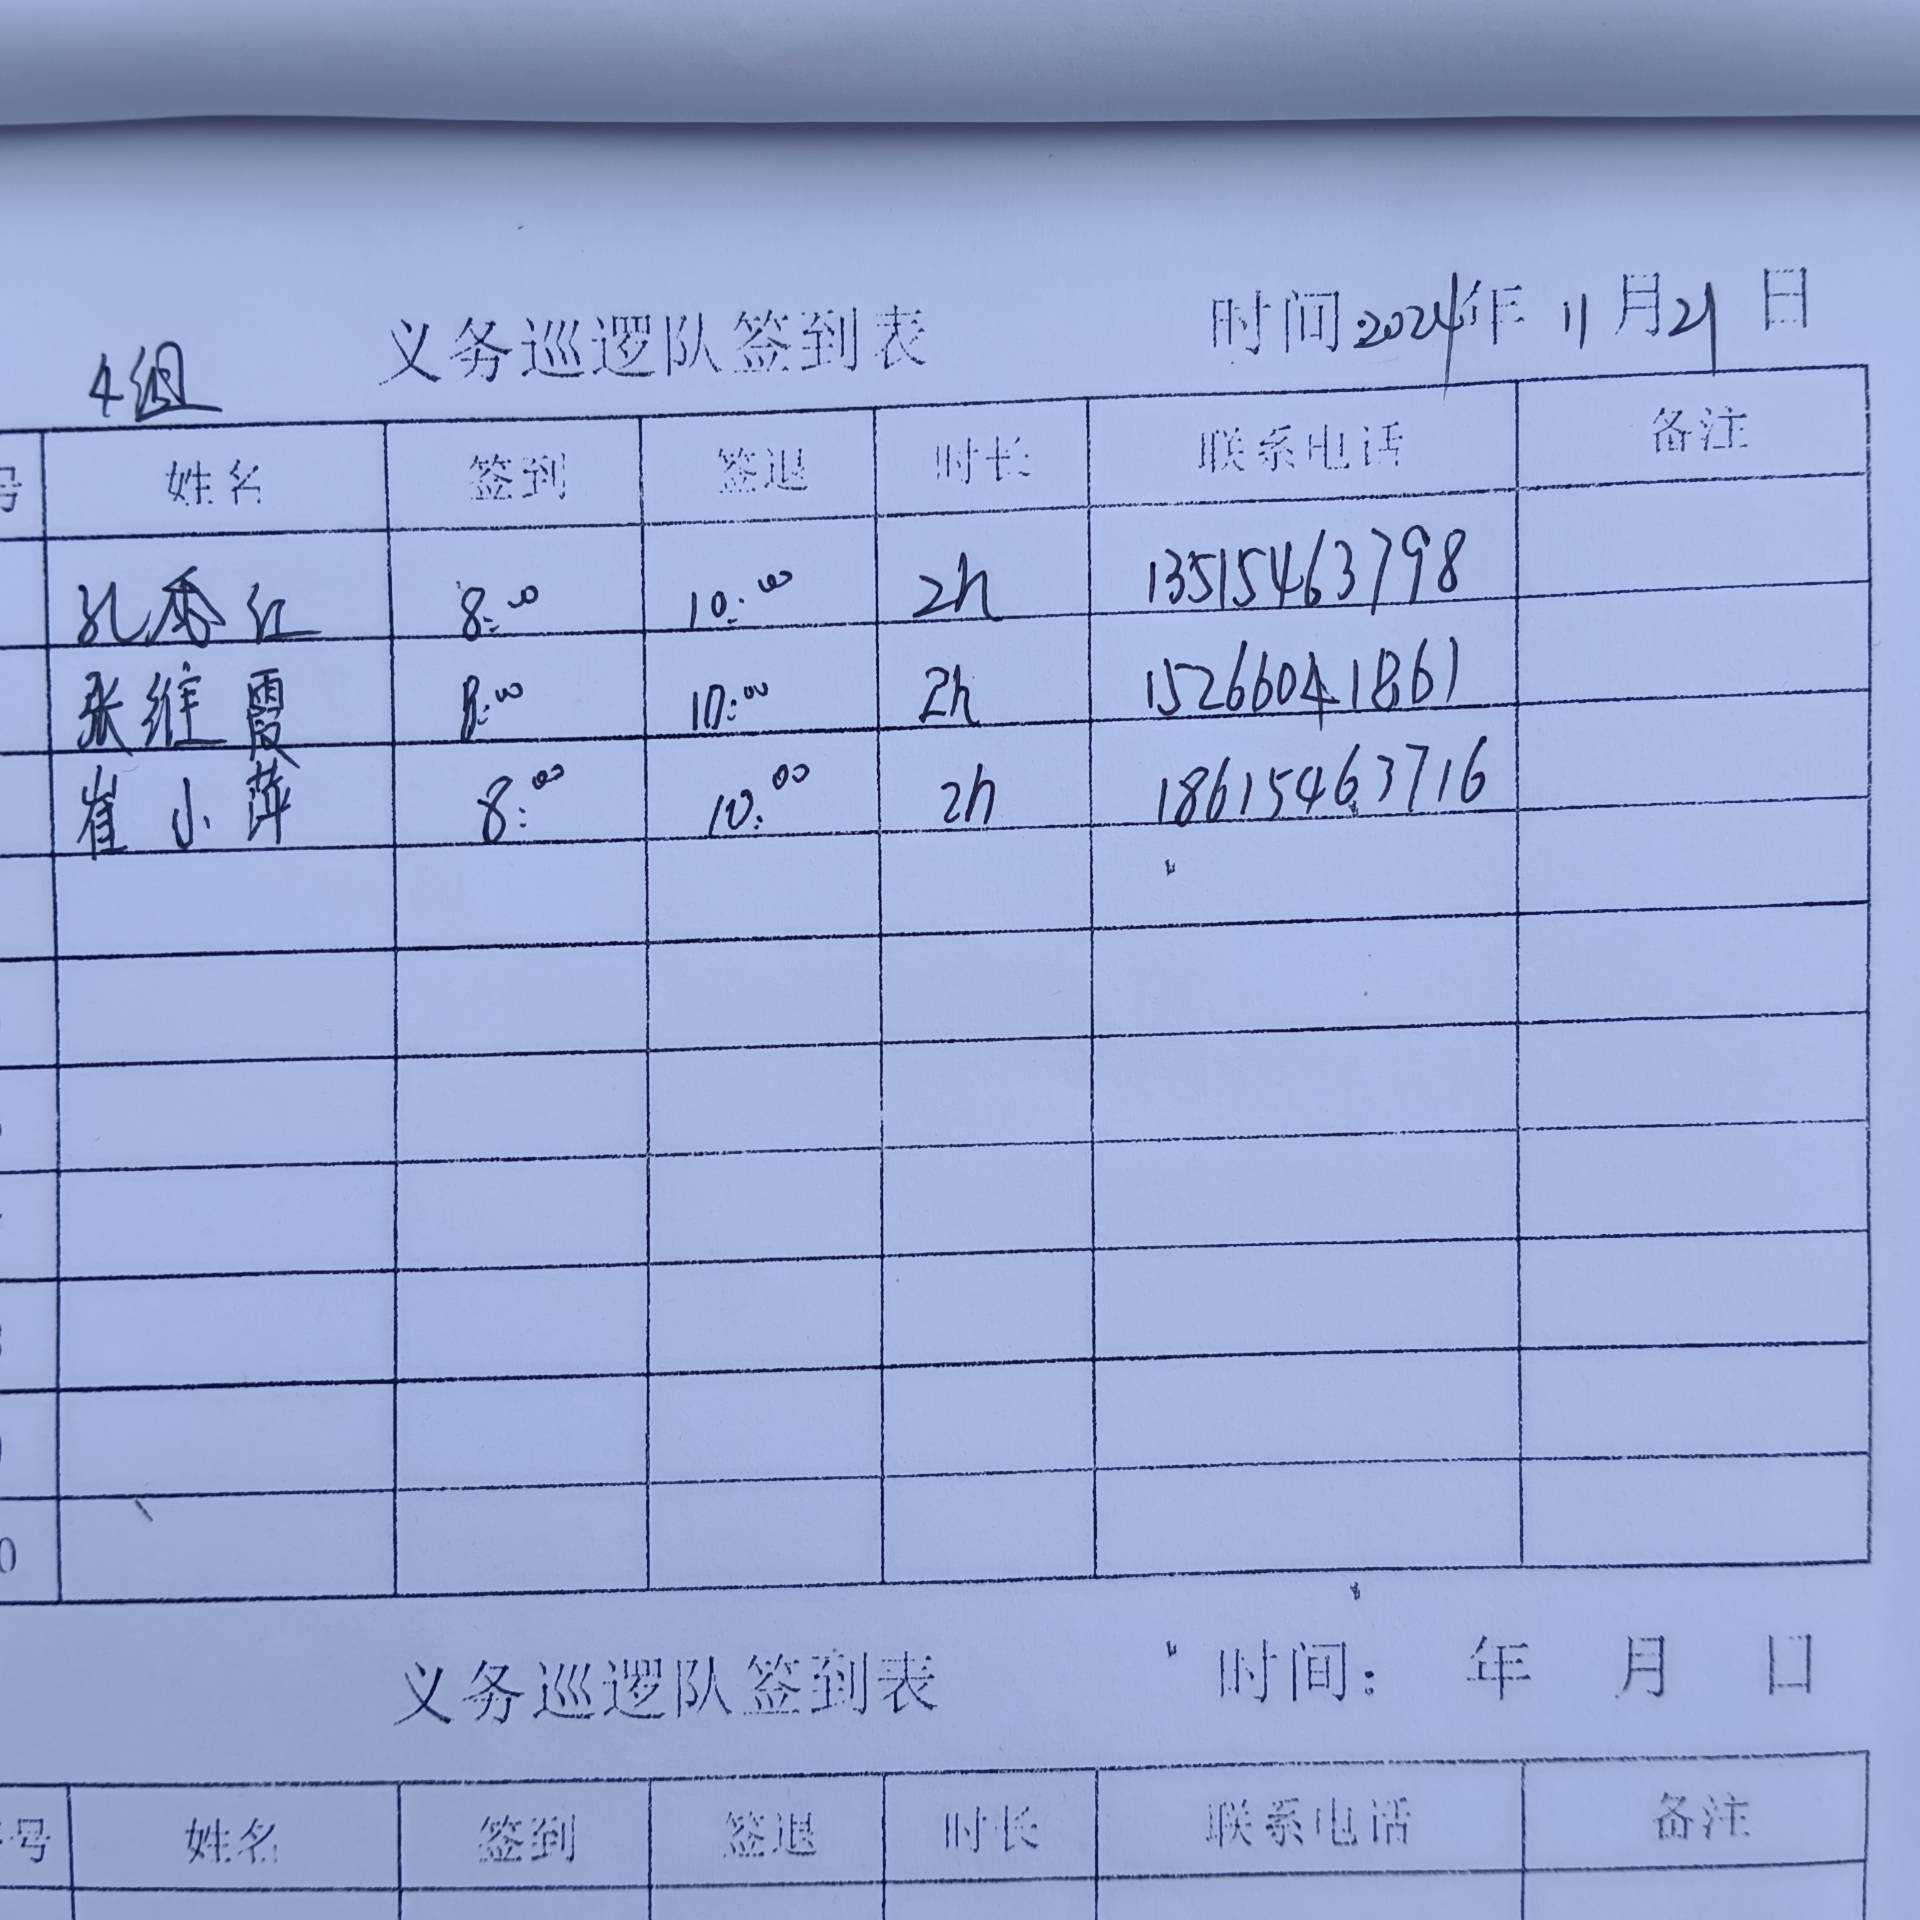 4组 义务巡逻队签到表 时间2024年 11月21日
号 姓名 签到 签退 时长 联系电话 备注
孔秀红 8:00 10:00 2h 13515463798
张维霞 8:00 10:00 2h 15266041861
崔小萍 8:00 10:00 2h 18615463716
0
义务巡逻队签到表 时间: 年 月 日
号 姓名 签到 签退 时长 联系电话 备注